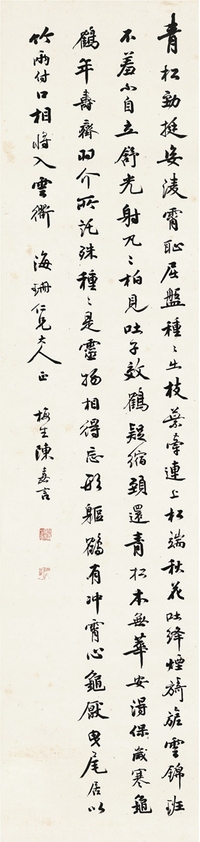 青松勁挺姿凌霄恥屈盤種種出枝葉牽連上松端秋花吐絳煙旖旎雲錦斑
不羞小自立舒光射丸丸柏見吐子效鶴疑縮頸還青松木無華安得保歲寒龜
鶴年壽齊羽介所託殊種種是靈物相得忘形軀鶴有沖霄心龜厭曳尾居以
竹兩付口相將入雲衢 海珊仁兄大人正 梅生陳嘉言